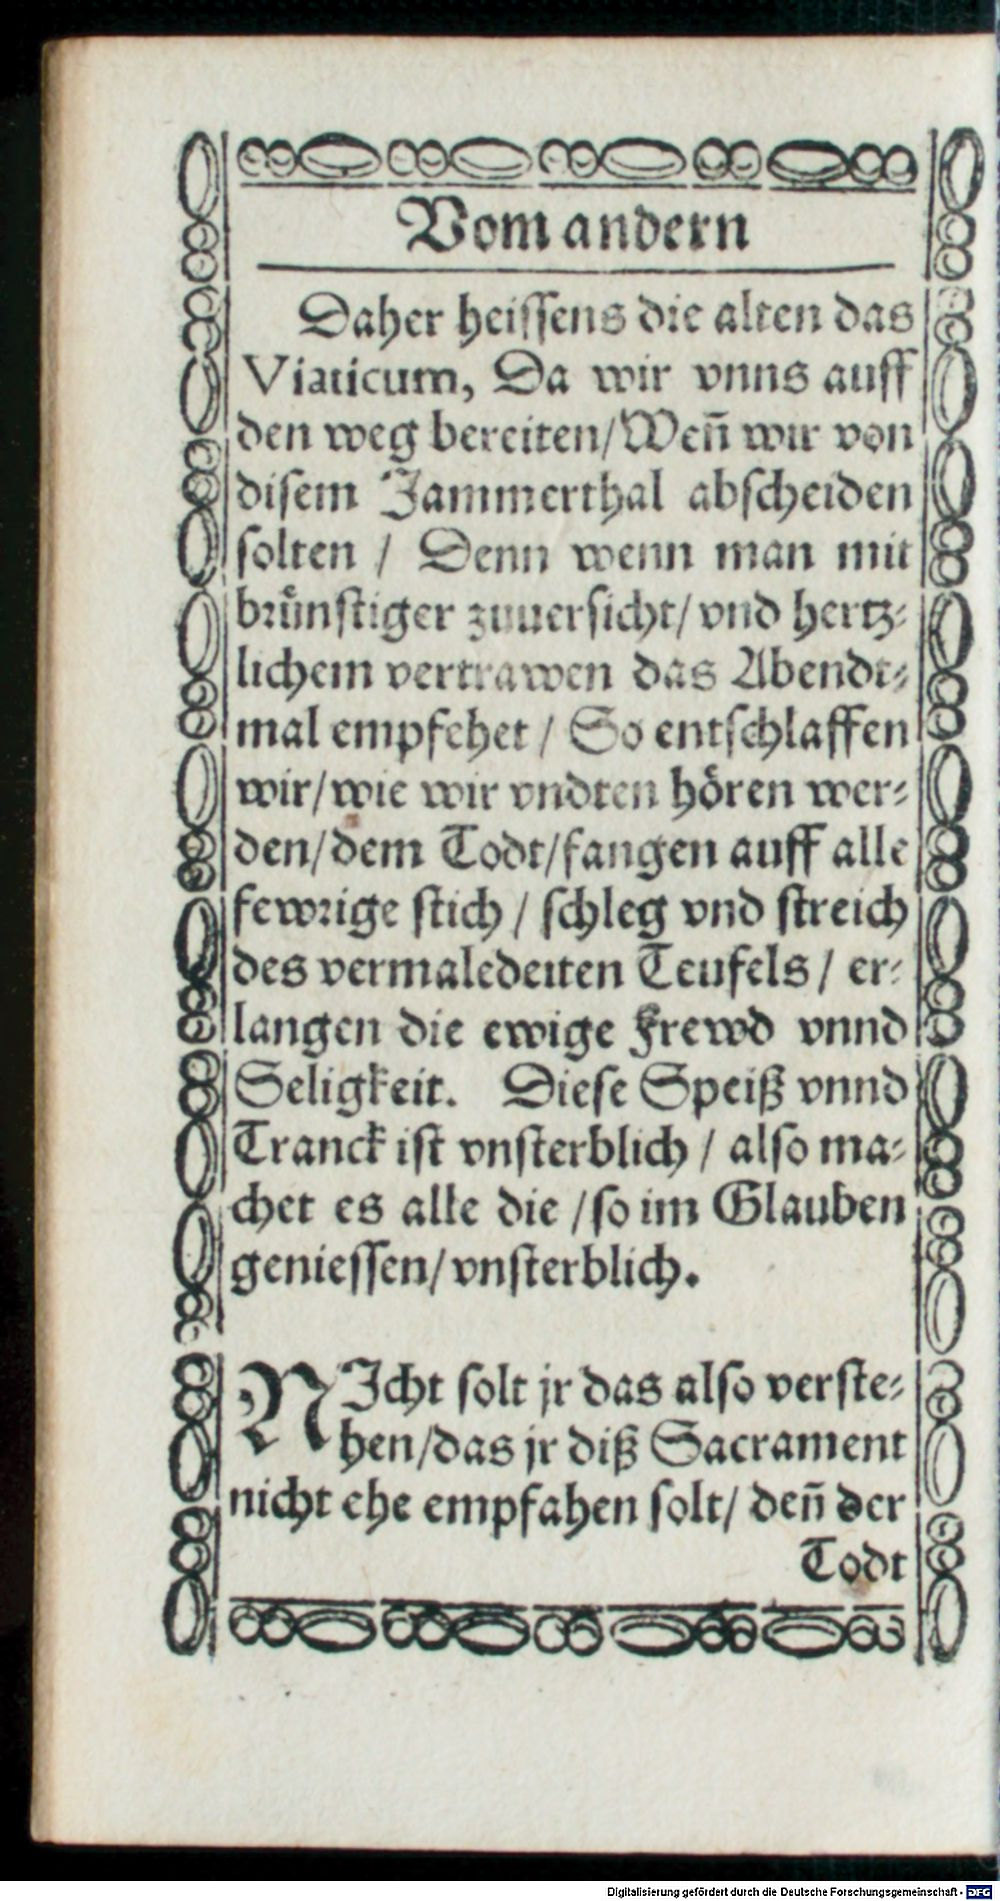 Vom andern
Daher heissens die alten das
Viaticum, Da wir vnns auff
den weg bereiten/Wen̄ wir von
disem Jammerthal abscheiden
solten / Denn wenn man mit
brünstiger zuuersicht/ vnd hertz⸗
lichem vertrawen das Abendt⸗
mal empfehet / So entschlaffen
wir/wie wir vndten hören wer⸗
den/dem Todt/fangen auff alle
fewrige stich / schleg vnd streich
des vermaledeiten Teufels / er⸗
langen die ewige Frewd vnnd
Seligkeit. Diese Speiß vnnd
Tranck ist vnsterblich / also ma⸗
chet es alle die /so im Glauben
geniessen/ vnsterblich.
NIcht solt jr das also verste⸗
hen/das jr diß Sacrament
nicht ehe empfahen solt/ den̄ der
Todt
Digitalisierung gefördert durch die Deutsche Forschungsgemeinschaft - DFG